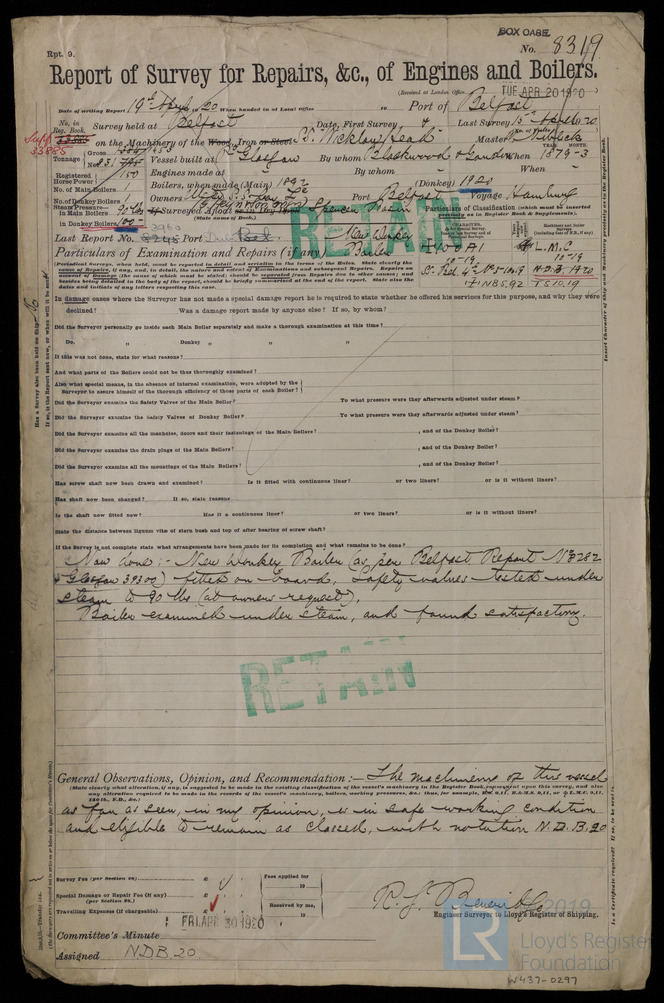 BOX CASE
Rpt. 9.
No. 8319
Report of Survey for Repairs, &c., of Engines and Boilers.
(Received at London Office TUE APR 20 1920
Date of writing Report 19th April 1920 When handed in at Local Office 10 Port of Belfast
No. in Reg. Book. Survey held at Belfast Date, First Survey Last Survey 15th April 1920
33885 on the Machinery of the Wood, Iron or Steel S.S. "Wicklow Head" Master
Tonnage Gross Vessel built at Glasgow By whom Blackwood & Gordon When 1879-3
Net 831
Registered Horse Power 150 Engines made at By whom When
No. of Main Boilers 1 Boilers, when made (Main) 1892 (Donkey) 1920
No. of Donkey Boilers 1 Owners Port Belfast Voyage Hamburg
Steam Pressure—
in Main Boilers 90 lbs If Surveyed Afloat or in Dry Dock Spencer Basin
(State name of Dock.)
in Donkey Boilers 100
Particulars of Classification (which must be inserted precisely as in Register Book & Supplements).
Last Report No. Port
RETAIN
New Donkey Boiler
Particulars of Examination and Repairs (if any)
+100A1
L.M.C
10-19
10-19
+NB5,92 TS10.19
In damage cases where the Surveyor has not made a special damage report he is required to state whether he offered his services for this purpose, and why they were
declined? Was a damage report made by anyone else? If so, by whom?
Did the Surveyor personally go inside each Main Boiler separately and make a thorough examination at this time?
Do. „ Donkey „ „ „
If this was not done, state for what reasons?
And what parts of the Boilers could not be thus thoroughly examined?
Also what special means, in the absence of internal examination, were adopted by the
Surveyor to assure himself of the thorough efficiency of those parts of each Boiler?
Did the Surveyor examine the Safety Valves of the Main Boiler? To what pressure were they afterwards adjusted under steam?
Did the Surveyor examine the Safety Valves of Donkey Boiler? To what pressure were they afterwards adjusted under steam?
Did the Surveyor examine all the manholes, doors and their fastenings of the Main Boilers? , and of the Donkey Boiler?
Did the Surveyor examine the drain plugs of the Main Boilers? , and of the Donkey Boiler?
Did the Surveyor examine all the mountings of the Main Boilers? , and of the Donkey Boiler?
Has screw shaft now been drawn and examined? Is it fitted with continuous liner? or two liners? or is it without liners?
Has shaft now been changed? If so, state reasons
Is the shaft now fitted new? Has it a continuous liner? or two liners? or is it without liners?
State the distance between lignum vitæ of stern bush and top of after bearing of screw shaft?
If the Survey is not complete state what arrangements have been made for its completion and what remains to be done?
Now done:- New Donkey Boiler (as per Belfast Report No 8282
& Glasgow 39300) fitted on board, Safety valves tested under
steam to 90 lbs (at owners request).
Boiler examined under steam, and found satisfactory.
RETAIN
General Observations, Opinion, and Recommendation:— The machinery of this vessel
(State clearly what alteration, if any, is suggested to be made in the existing classification of the vessel's machinery in the Register Book, consequent upon this survey, and also
any alteration required to be made in the records of the vessel's machinery, boilers, working pressures, &c.
as far as seen, in my opinion, is in safe working condition
and eligible to remain as classed, with notation N.D.B. 20
Survey Fee (per Section 29) £ Fees applied for
19
Special Damage or Repair Fee (if any) £
(per Section 29.) Received by me,
Travelling Expenses (if chargeable) £ 19
FRI. APR 30 1920
Engineer Surveyor to Lloyd's Register of Shipping.
Committee's Minute
Assigned N.D.B. 20
2019
LR
Lloyd's Register
Foundation
W437-0297